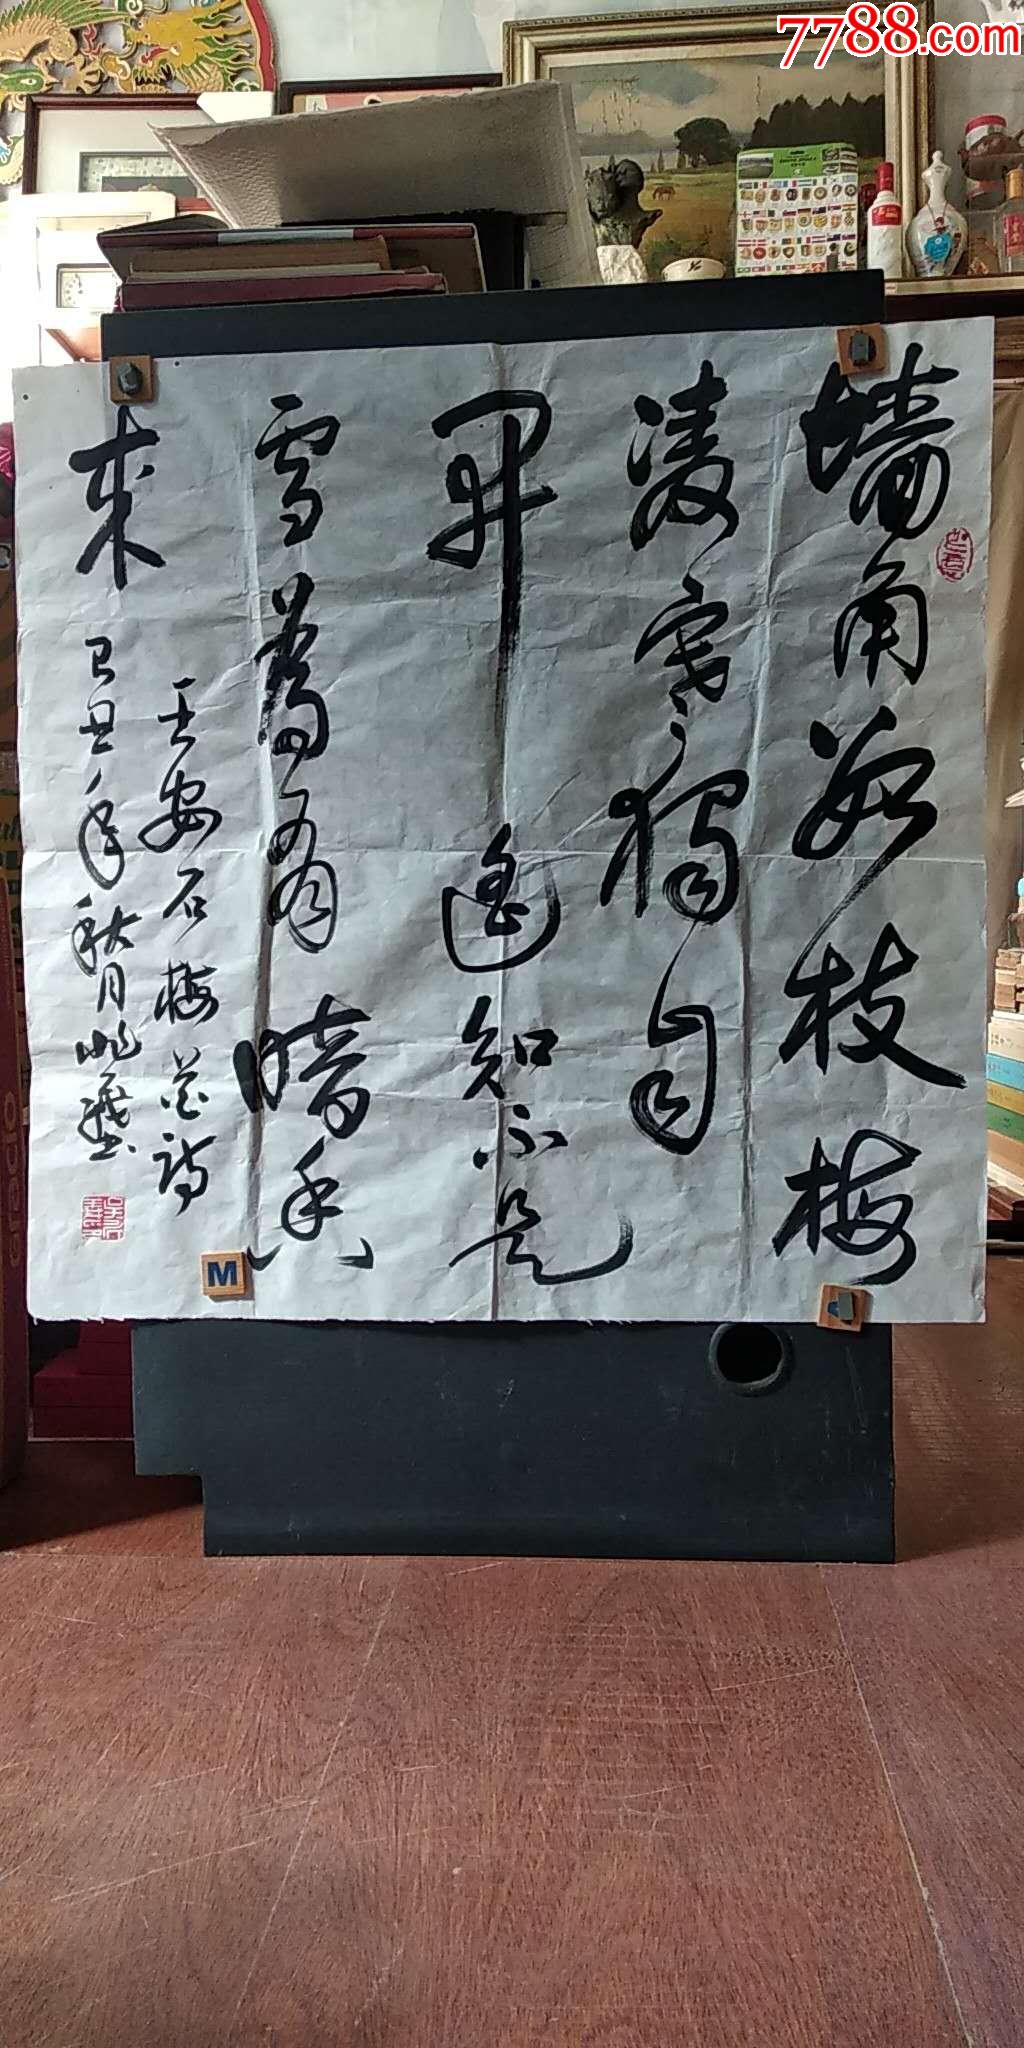 7788.com
墙角数枝梅
凌寒独自
开 遥知不是
雪为有暗香
来
王安石梅花诗
己丑年秋月
M